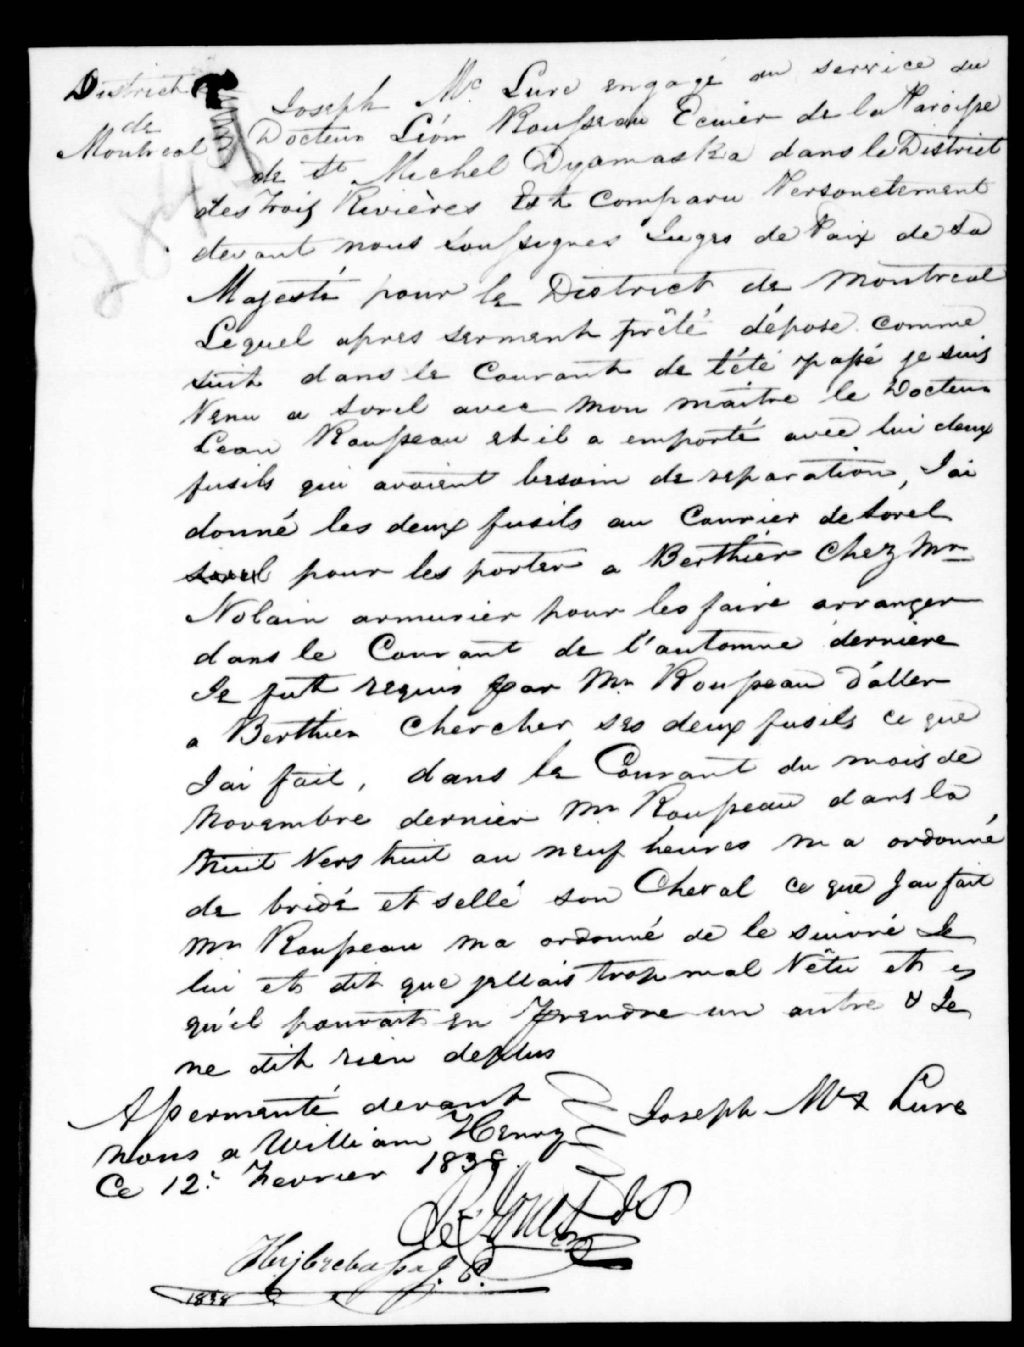 District
de
Montreal
Joseph Mc Lure engagé au service du
Docteur Léon Rousseau Ecuier de la Paroisse
de St Michel Dyamaska dans le District
des trois Rivières Est comparu Personelement
devant nous soussignés Juges de Paix de Sa
Majesté pour le District de Montreal
Lequel apres serment prêté dépose comme
suit dans le Courant de l'été passé je suis
Venu a Sorel avec mon maitre le Docteur
Lean Rousseau et il a emporté avec lui deux
fusils qui avoient besoin de reparation, J'ai
donné les deux fusils au Courier de Sorel
pour les porter a Berthier Chez Mr
Nolain armurier pour les faire arranger
dans le Courant de l'automne derniere
Je fut requis par Mr Rousseau d'aller
a Berthier Chercher ses deux fusils ce que
J'ai fait, dans le Courant du mois de
Novembre dernier Mr Rousseau dans la
Nuit Vers huit au neuf heures m a ordonné
de bridé et sellé son Cheval ce que J'ai fait
Mr Rousseau ma ordonné de le suivré Je
lui et dit que j'ettais trop mal Vêtu et
qu'il pouvait en Prendre un autre & Je
ne dit rien deplus
Assermenté devant
nous a William Henry
Ce 12: Fevrier 1838
Joseph Mc Lure
J. P.
1838
284